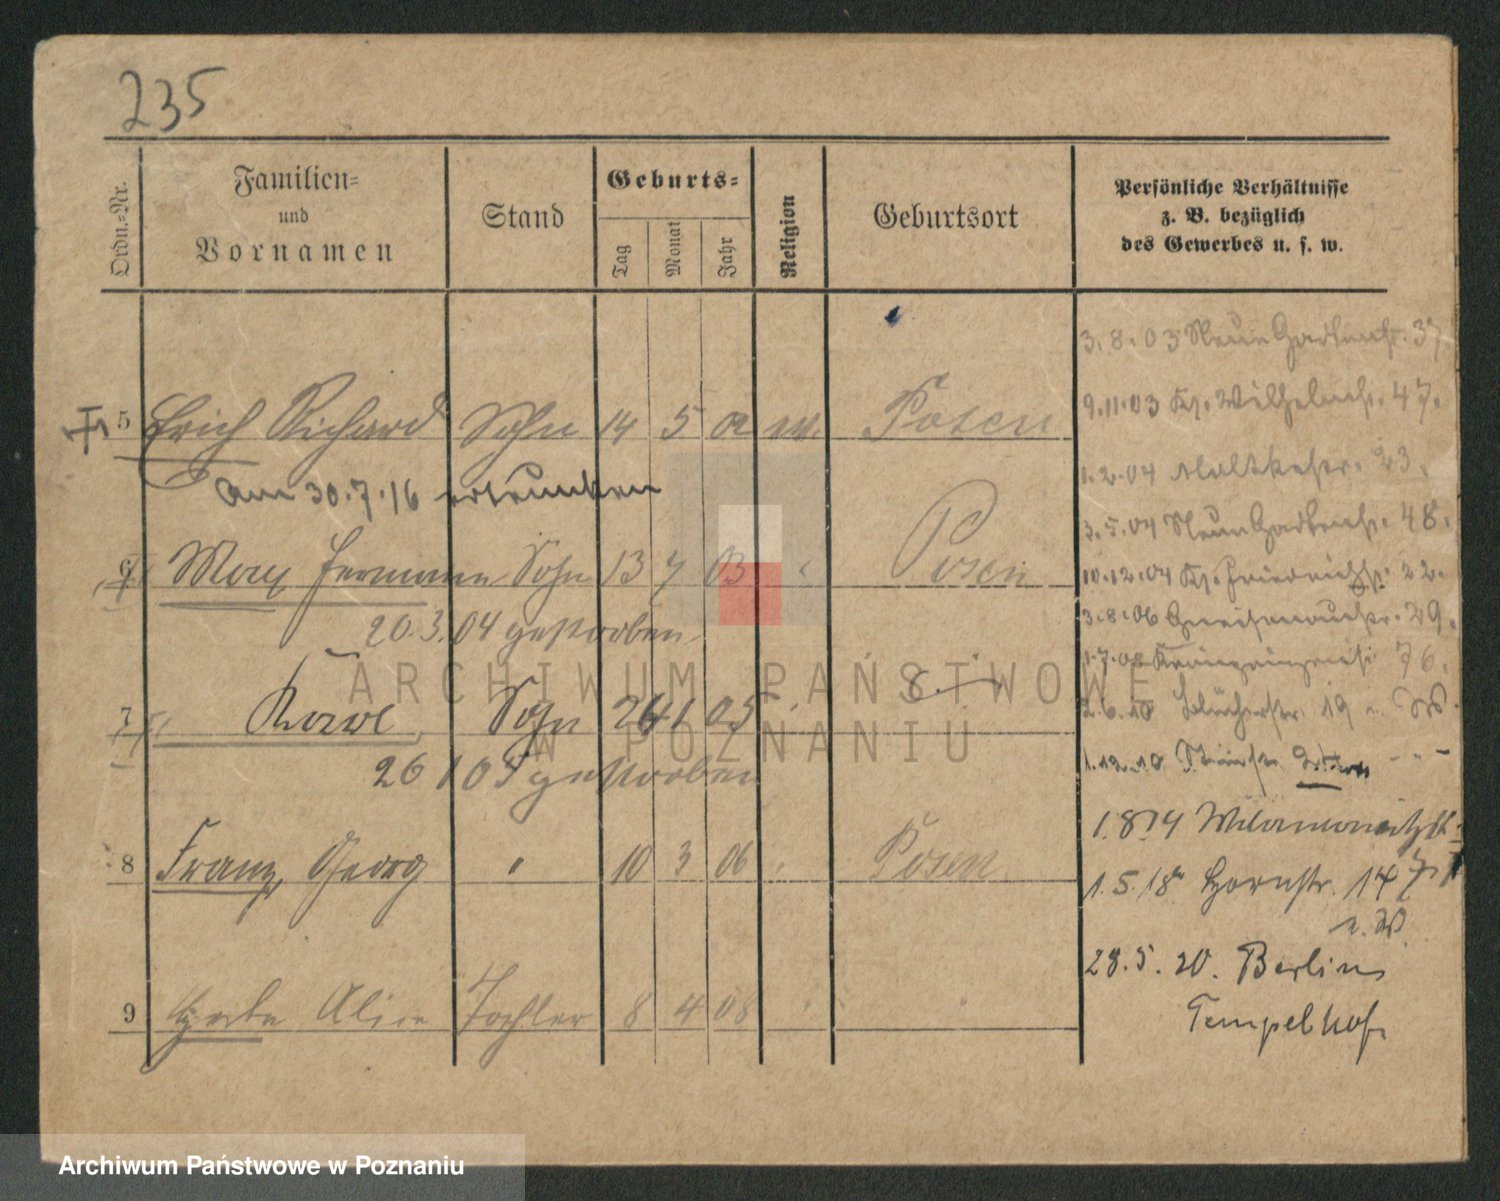 235
Ordn.=Nr.
Familien=
und
Vornamen
Stand
Geburts=
Tag
Monat
Jahr
Religion
Geburtsort
Persönliche Verhältnisse
z. B. bezüglich
des Gewerbes u. s. w.
3.8.03 Neue Gartenstr. 37
9.11.03 Ks. Wilhelmstr. 47.
5 Erich Richard Sohn 14 5 02 Posen
1.2.04 Moltkestr. 23.
am 30.7.16 ertrunken
3.5.04 Neue Gartenstr. 48.
6 Max Hermann Sohn 13 7 03 " Posen
10.12.04 Ks. Friedrichstr. 22.
20.3.04 gestorben
3.8.06 Gneisenaustr. 29.
1.7.08 76.
7 Karl Sohn 26 1 05 "
2.6.10 Blücherstr. 19
26 1 05 gestorben
1.12.10
1.8.14
8 Franz Georg " 10 3 06 " Posen
1.5.18 Hornstr. 14
28.5.20. Berlin
Tempelhof
9 Alice Tochter 8 4 08 " "
ARCHIWUM PAŃSTWOWE
W POZNANIU
Archiwum Państwowe w Poznaniu